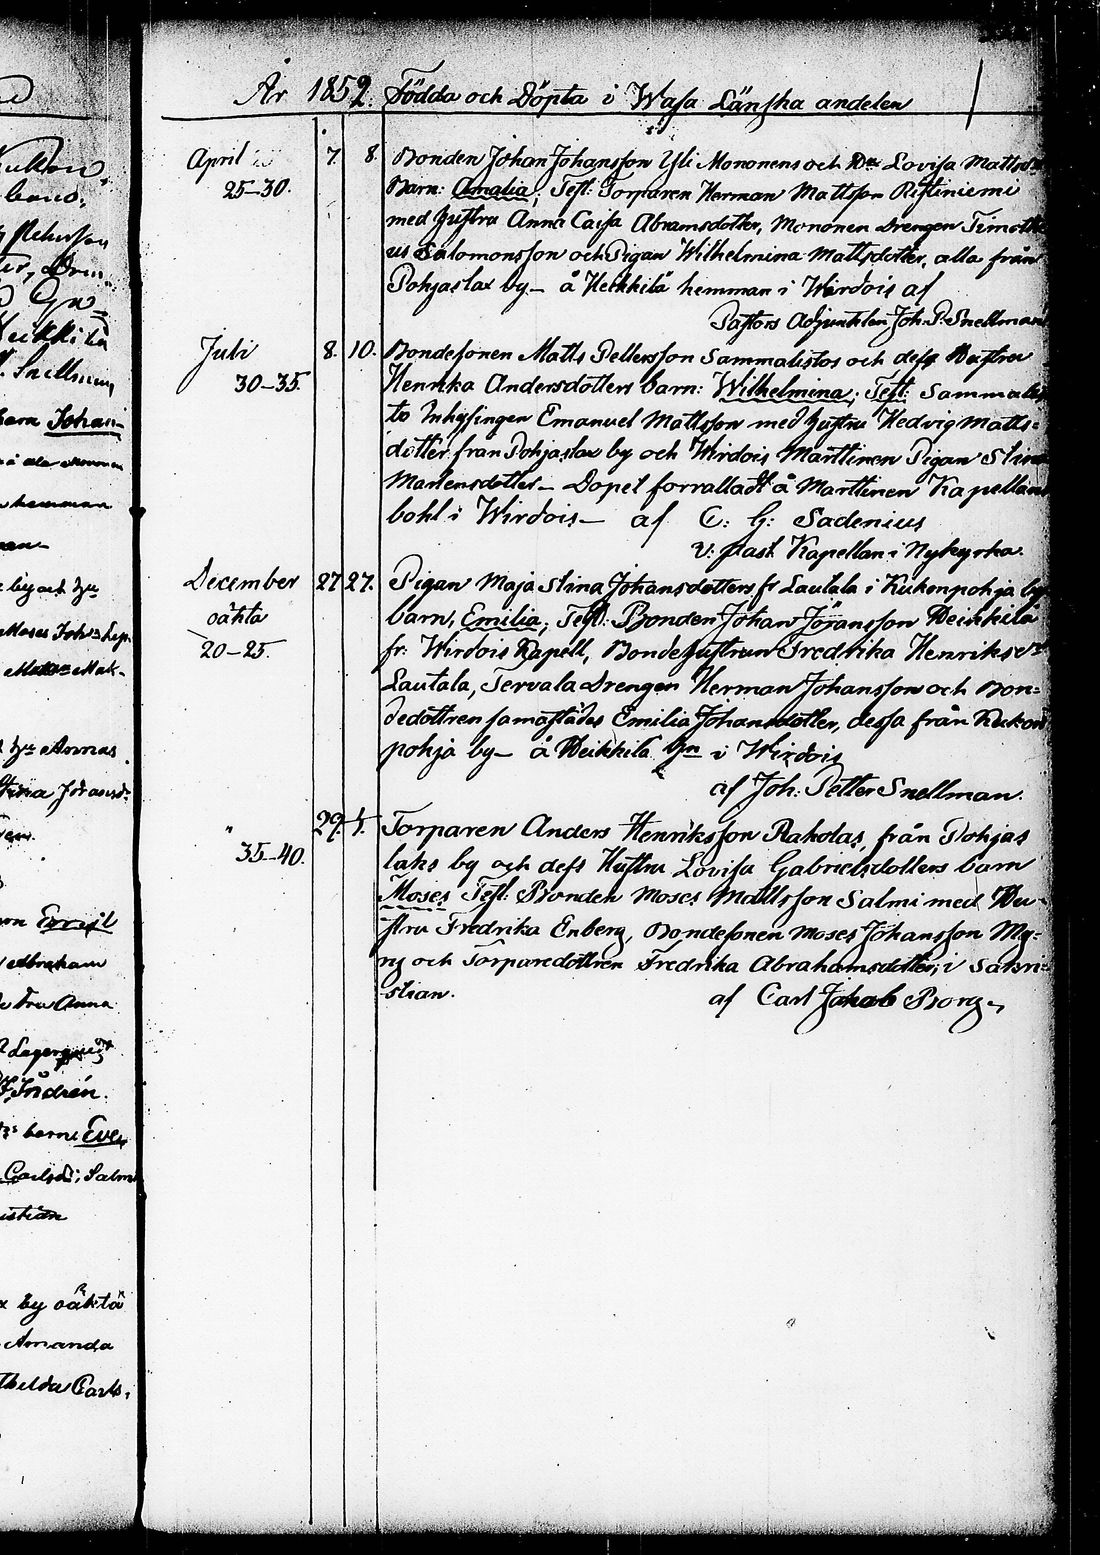 År 1852. Födda och Döpta i Wasa Länska andelen
April 7. 8. Bonden Johan Johansson Yli Mononens och Hu Lovisa Mattsd
25-30. Barn: Amalia; Test: Torparen Herman Mattsson Ristiniemi
med hustru Anna Caisa Abramsdotter, Mononen Drengen Timothe
us Salomonsson och Pigan Wilhelmina Mattsdotter, alla från
Pohjaslax by – å Heikkilä hemman i Wirdois af
Pastors Adjunkten Joh. P. Snellman
Juli 8. 10. Bondesonen Matts Pettersson Sammalistos och dess Hustru
30-35. Henrika Andersdotters barn: Wilhelmina; Test: Sammalis
to Inhysingen Emanuel Mattsson med hustru Hedvig Matts=
dotter från Pohjaslax by och Wirdois Marttinen Pigan Stina
Mårtensdotter – Dopet förrättadt å Marttinen Kapellans
bohl i Wirdois – af C: G: Sadenius
v: past. Kapellan i Nykyrka.
December 27 27. Pigan Maja Stina Johansdotters fr Lautala i Kukonpohja by
oäkta barn, Emilia; Test: Bonden Johan Jöransson Heikkilä
20-25. fr: Wirdois Kapell, Bondehustrun Fredrika Henriksdr
Lautala, Tervala Drengen Herman Johansson och Bon=
dedottren samastädes Emilia Johansdotter, dessa från Kukon
pohja by – å Heikkilä i Wirdois
af Joh: Petter Snellman.
" 29. Torparen Anders Henriksson Rakolas, från Pohjas
35-40. laks by och dess Hustru Lovisa Gabrielsdotters barn
Moses Test: Bonden Moses Mattsson Salmi med Hu-
stru Fredrika Enberg, Bondesonen Moses Johansson My-
ry och Torparedottren Fredrika Abrahamsdotter; i Sakri-
stian. af Carl Jakob Borg.
Heikkilä
Snellman
barn Johan-
hemman
Emil
Abraham
Anna
Lagerqvist
barn Eva
Carlsd; Salmi
by oäkta
Amanda